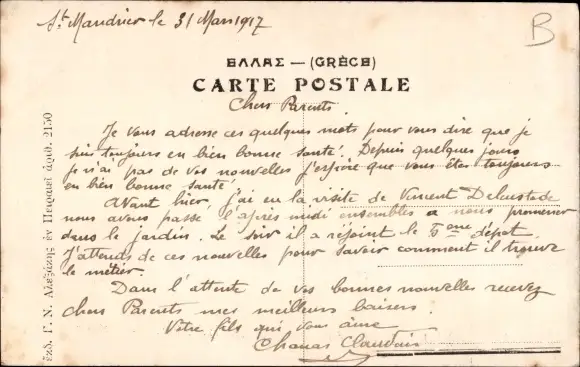 St. Mandrier le 31 Mars 1917
B
ΕΛΛΑΣ — (GRÈCE)
CARTE POSTALE
Chers Parents
Je vous adresse ces quelques mots pour vous dire que je
suis toujours en bien bonne santé. Depuis quelques jours
je n'ai pas de vos nouvelles j'espère que vous êtes toujours
en bien bonne santé.
Avant hier, j'ai eu la visite de Vincent
nous avons passé l'après midi ensembles a nous promener
dans le jardin. Le soir il a rejoint le 5eme dépot.
J'attends de ces nouvelles pour savoir comment il trouve
le métier.
Dans l'attente de vos bonnes nouvelles recevez
chers Parents mes meilleurs baisers.
Votre fils qui vous aime
Claudius
Ἐκδ. Γ. Ν. Ἀλεξάκης ἐν Πειραιεῖ ἀριθ. 2150